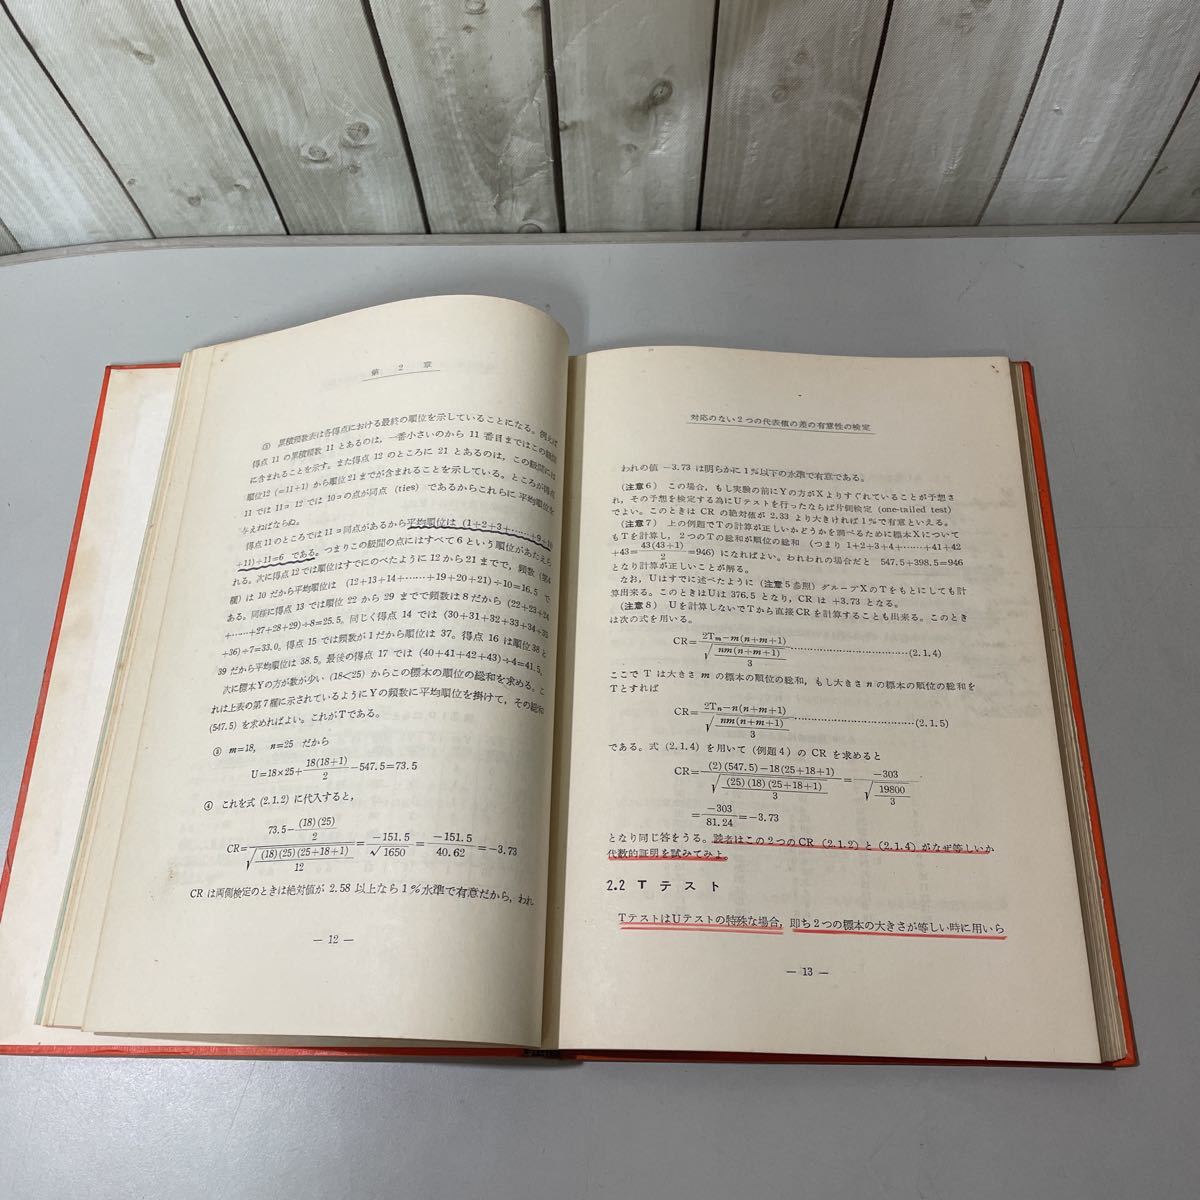 第 2 章
① 累積頻数表は各得点における最終の順位を示していることになる。例えば
得点 11 の累積頻数 11 とあるのは、一番小さいのから 11 番目まではこの級間
に含まれることを示す。また得点 12 のところに 21 とあるのは、この級間には
順位12 (=11+1) から順位21までが含まれることを示している。ところが得点
11 では 11コ 12 では 10コの点が同点 (ties) であるからこれらに 平均順位を
与えねばならぬ。
得点11のところでは11コ同点があるから平均順位は (1+2+3+……+9+10
+11)÷11=6 である。つまりこの級間の点にはすべて 6 という順位があたえら
れる。次に得点12ではすでにのべたように12から21までで、頻数 (第4
欄) は 10 だから平均順位は (12+13+14+……+19+20+21)÷10=16.5 で
ある。同様に得点 13 では順位 22 から 29 までで頻数は8だから (22+23+24
+……+27+28+29)÷8=25.5。同じく得点 14 では (30+31+32+33+34+35
+36)÷7=33.0。得点 15 では頻数が1だから順位は 37。得点 16 は順位38と
39 だから平均順位は 38.5。最後の得点 17 では (40+41+42+43)÷4=41.5。
次に標本Yの方が数が少い (18<25) からこの標本の順位の総和を求める。こ
れは上表の第7欄に示されているようにYの頻数に平均順位を掛けて、その総和
(547.5) を求めればよい。これがTである。
③ m=18, n=25 だから
U=18×25+18(18+1)/2−547.5=73.5
④ これを式 (2.1.2) に代入すると、
CR=(73.5−(18)(25)/2)/√((18)(25)(25+18+1)/12)=−151.5/√1650=−151.5/40.62=−3.73
CR は両側検定のときは絶対値が 2.58 以上なら1%水準で有意だから、われ
— 12 —
対応のない2つの代表値の差の有意性の検定
われの値 −3.73 は明らかに1%以下の水準で有意である。
(注意6) この場合、もし実験の前にYの方がXよりすぐれていることが予想さ
れ、その予想を検定する為にUテストを行ったならば片側検定 (one-tailed test)
でよい。このときは CR の絶対値が 2.33 より大きければ1%で有意といえる。
(注意7) 上の例題でTの計算が正しいかどうかを調べるために標本Xについて
もTを計算し、2つのTの総和が順位の総和 (つまり 1+2+3+4+……+41+42
+43=43(43+1)/2=946) になればよい。われわれの場合だと 547.5+398.5=946
となり計算が正しいことが解る。
なお、Uはすでに述べたように (注意5参照) グループXのTをもとにしても計
算出来る。このときはUは 376.5 となり、CR は +3.73 となる。
(注意8) Uを計算しないでTから直接CRを計算することも出来る。このとき
は次の式を用いる。
CR=(2Tm−m(n+m+1))/√(nm(n+m+1)/3)……………………(2.1.4)
ここで T は大きさ m の標本の順位の総和、もし大きさ n の標本の順位の総和を
Tとすれば
CR=(2Tn−n(n+m+1))/√(nm(n+m+1)/3)……………………(2.1.5)
である。式 (2.1.4) を用いて (例題4) の CR を求めると
CR=((2)(547.5)−18(25+18+1))/√((25)(18)(25+18+1)/3)=−303/√(19800/3)
=−303/81.24=−3.73
となり同じ答をうる。読者はこの2つのCR (2.1.2) と (2.1.4) がなぜ等しいか
代数的証明を試みてみよ。
2.2 T テ ス ト
TテストはUテストの特殊な場合、即ち2つの標本の大きさが等しい時に用いら
— 13 —